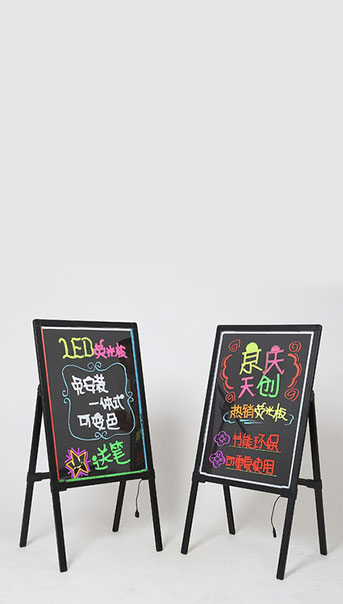 LED荧光板
免安装
一体式
可变色
送笔
京庆
天创
热销荧光板
节能环保
可重复使用